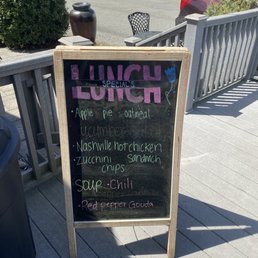 LUNCH
SPECIALS
• Apple pie oatmeal
• Nashville hot chicken
• Zucchini Sandwich
chips
SOUP • Chili
• Red pepper Gouda